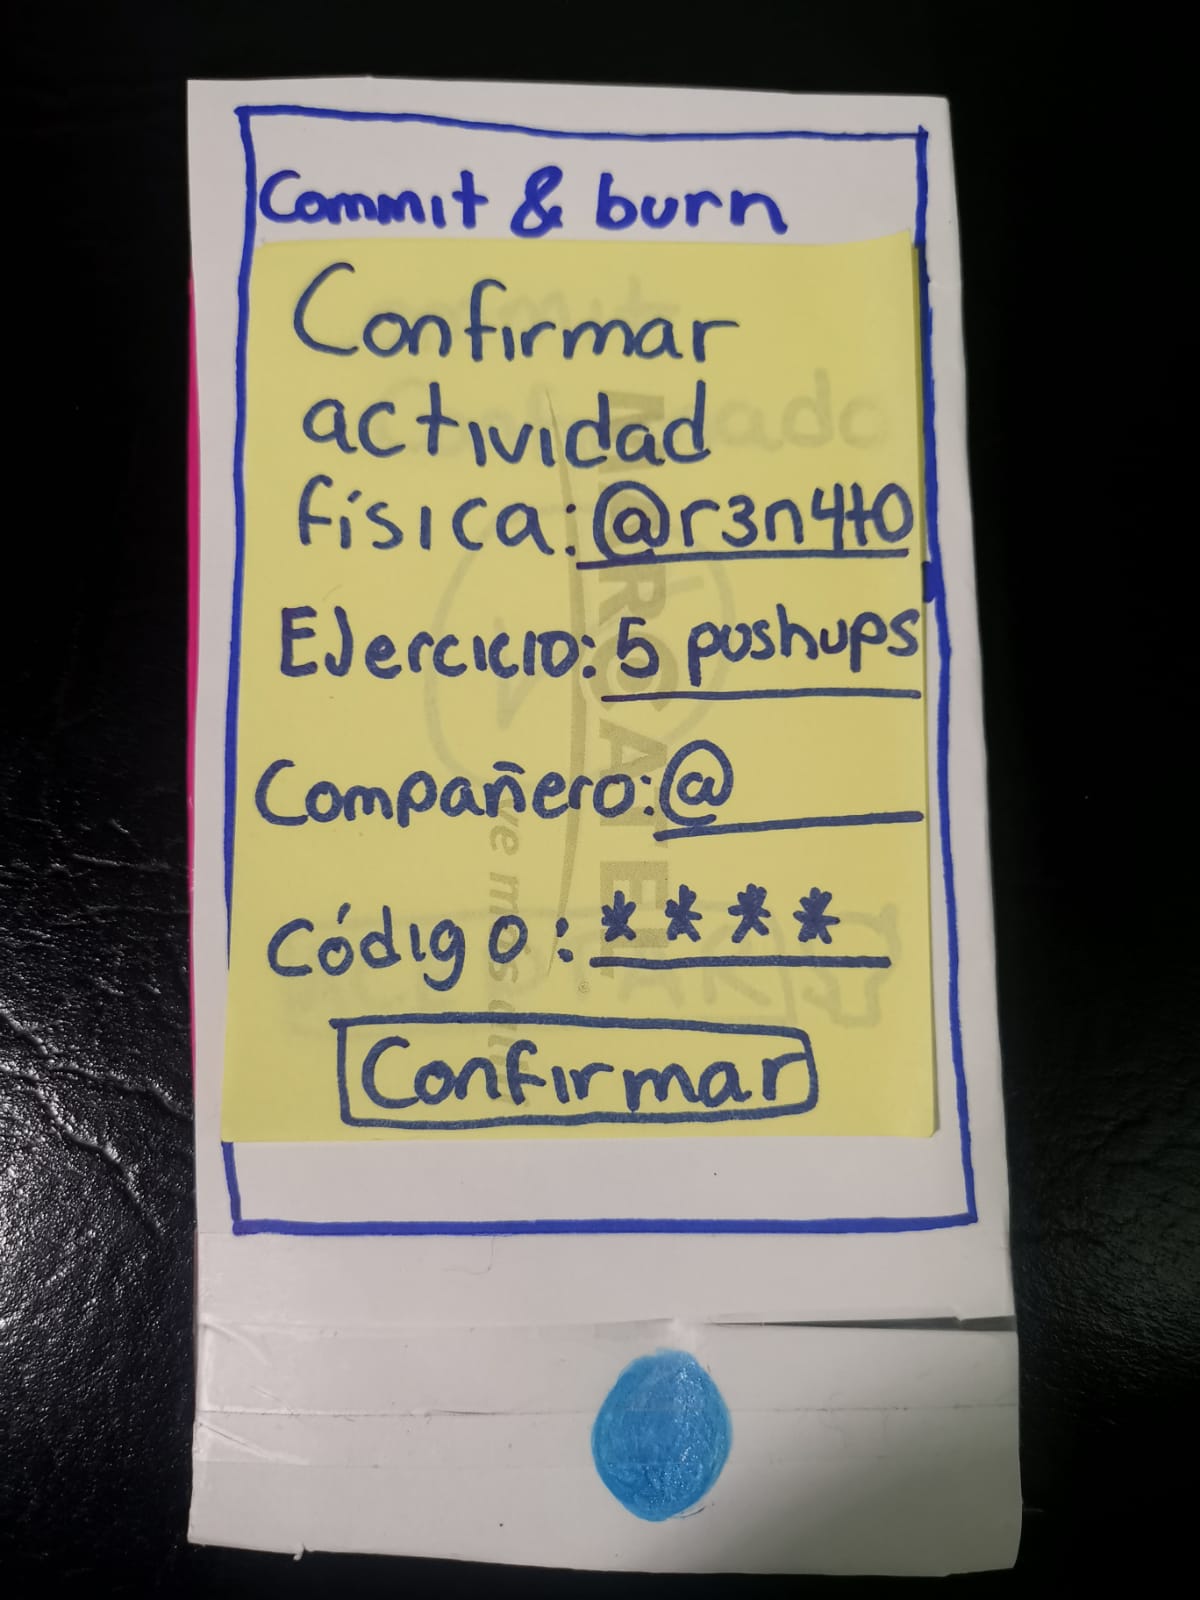 Commit & burn
Confirmar
actividad
física: @r3n4t0
Ejercicio: 5 pushups
Compañero: @
Código: ****
Confirmar
MERCATEL